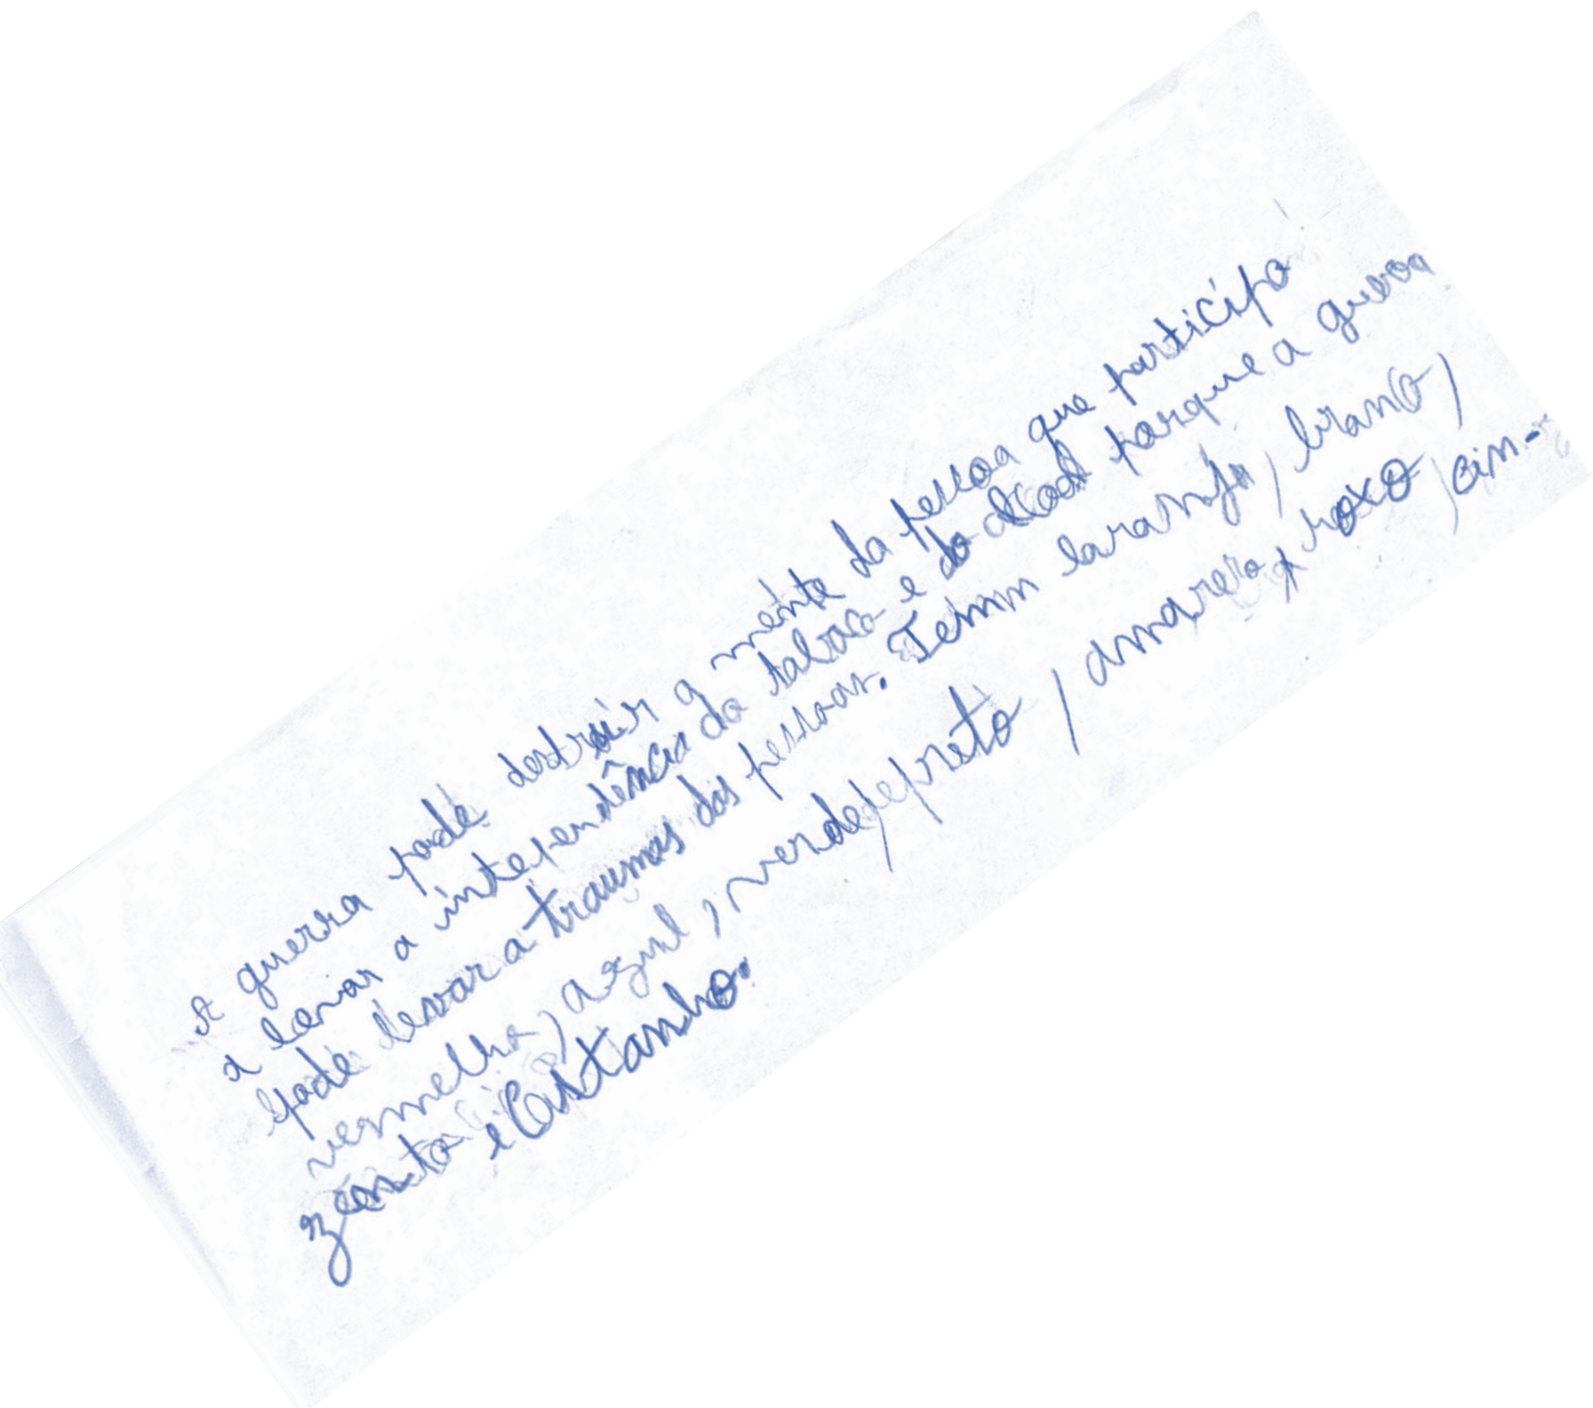 A guerra pode destruir a mente da pessoa que participa
a levar a intependência do tabaco e do alcool porque a guerra
pode levar a traumas das pessoas. Temm laranja, branco,
vermelho, azul, verde, preto, amarelo, roxo, cin-
zento e Castanho.